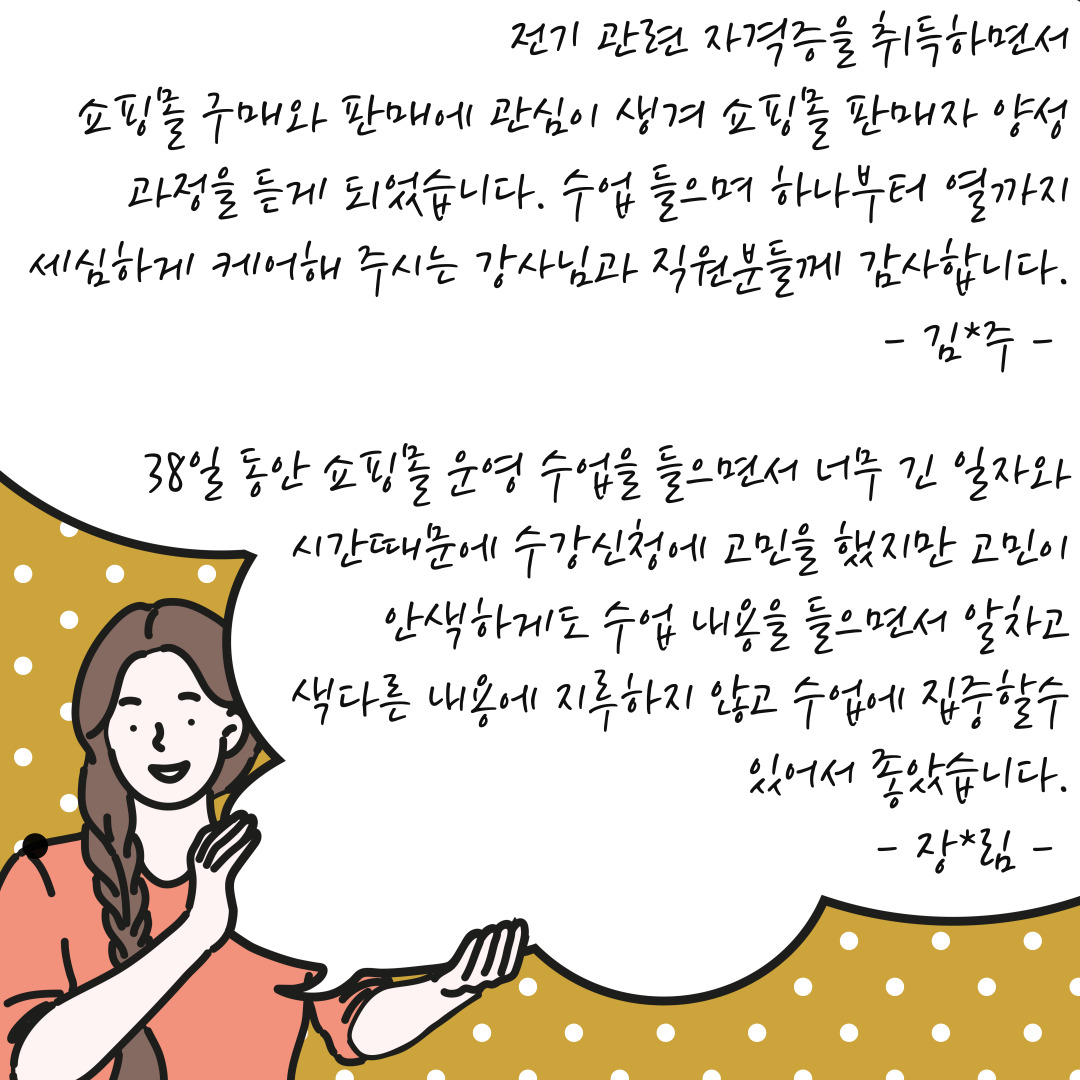 전기 관련 자격증을 취득하면서
쇼핑몰 구매와 판매에 관심이 생겨 쇼핑몰 판매자 양성
과정을 듣게 되었습니다. 수업 들으며 하나부터 열까지
세심하게 케어해 주시는 강사님과 직원분들께 감사합니다.
- 김*주 -
38일 동안 쇼핑몰 운영 수업을 들으면서 너무 긴 일자와
시간때문에 수강신청에 고민을 했지만 고민이
안색하게도 수업 내용을 들으면서 알차고
색다른 내용에 지루하지 않고 수업에 집중할수
있어서 좋았습니다.
- 장*림 -